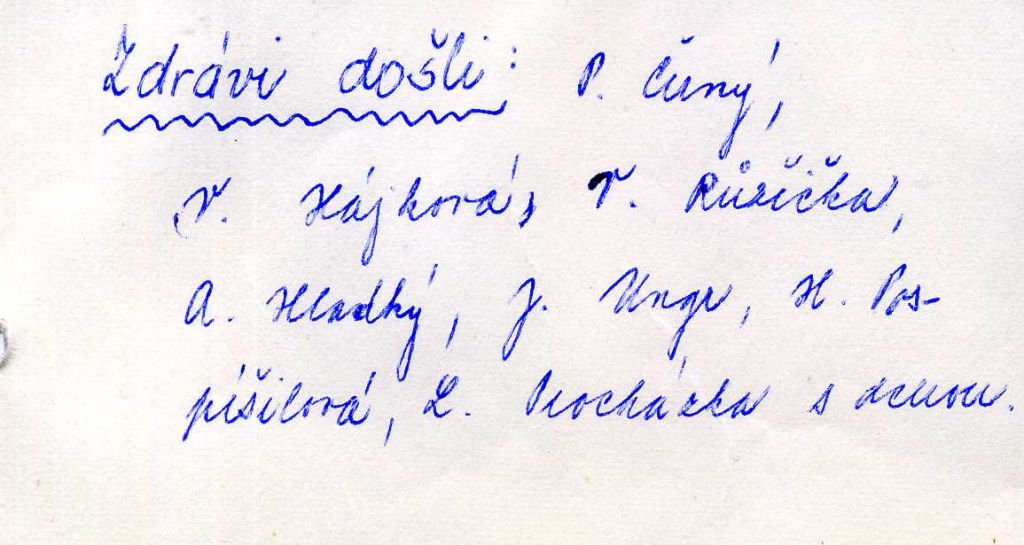 Zdrávi došli: P. Černý,
V. Hájková, V. Růžička,
A. Hladký, J. Ungr, H. Pos-
píšilová, L. Procházka s dcerou.